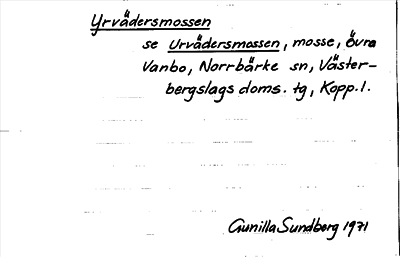 Yrvädersmossen
se Urvädersmossen, mosse, Övra
Vanbo, Norrbärke sn, Väster-
bergslags doms. tg, Kopp. l.
Gunilla Sundberg 1971